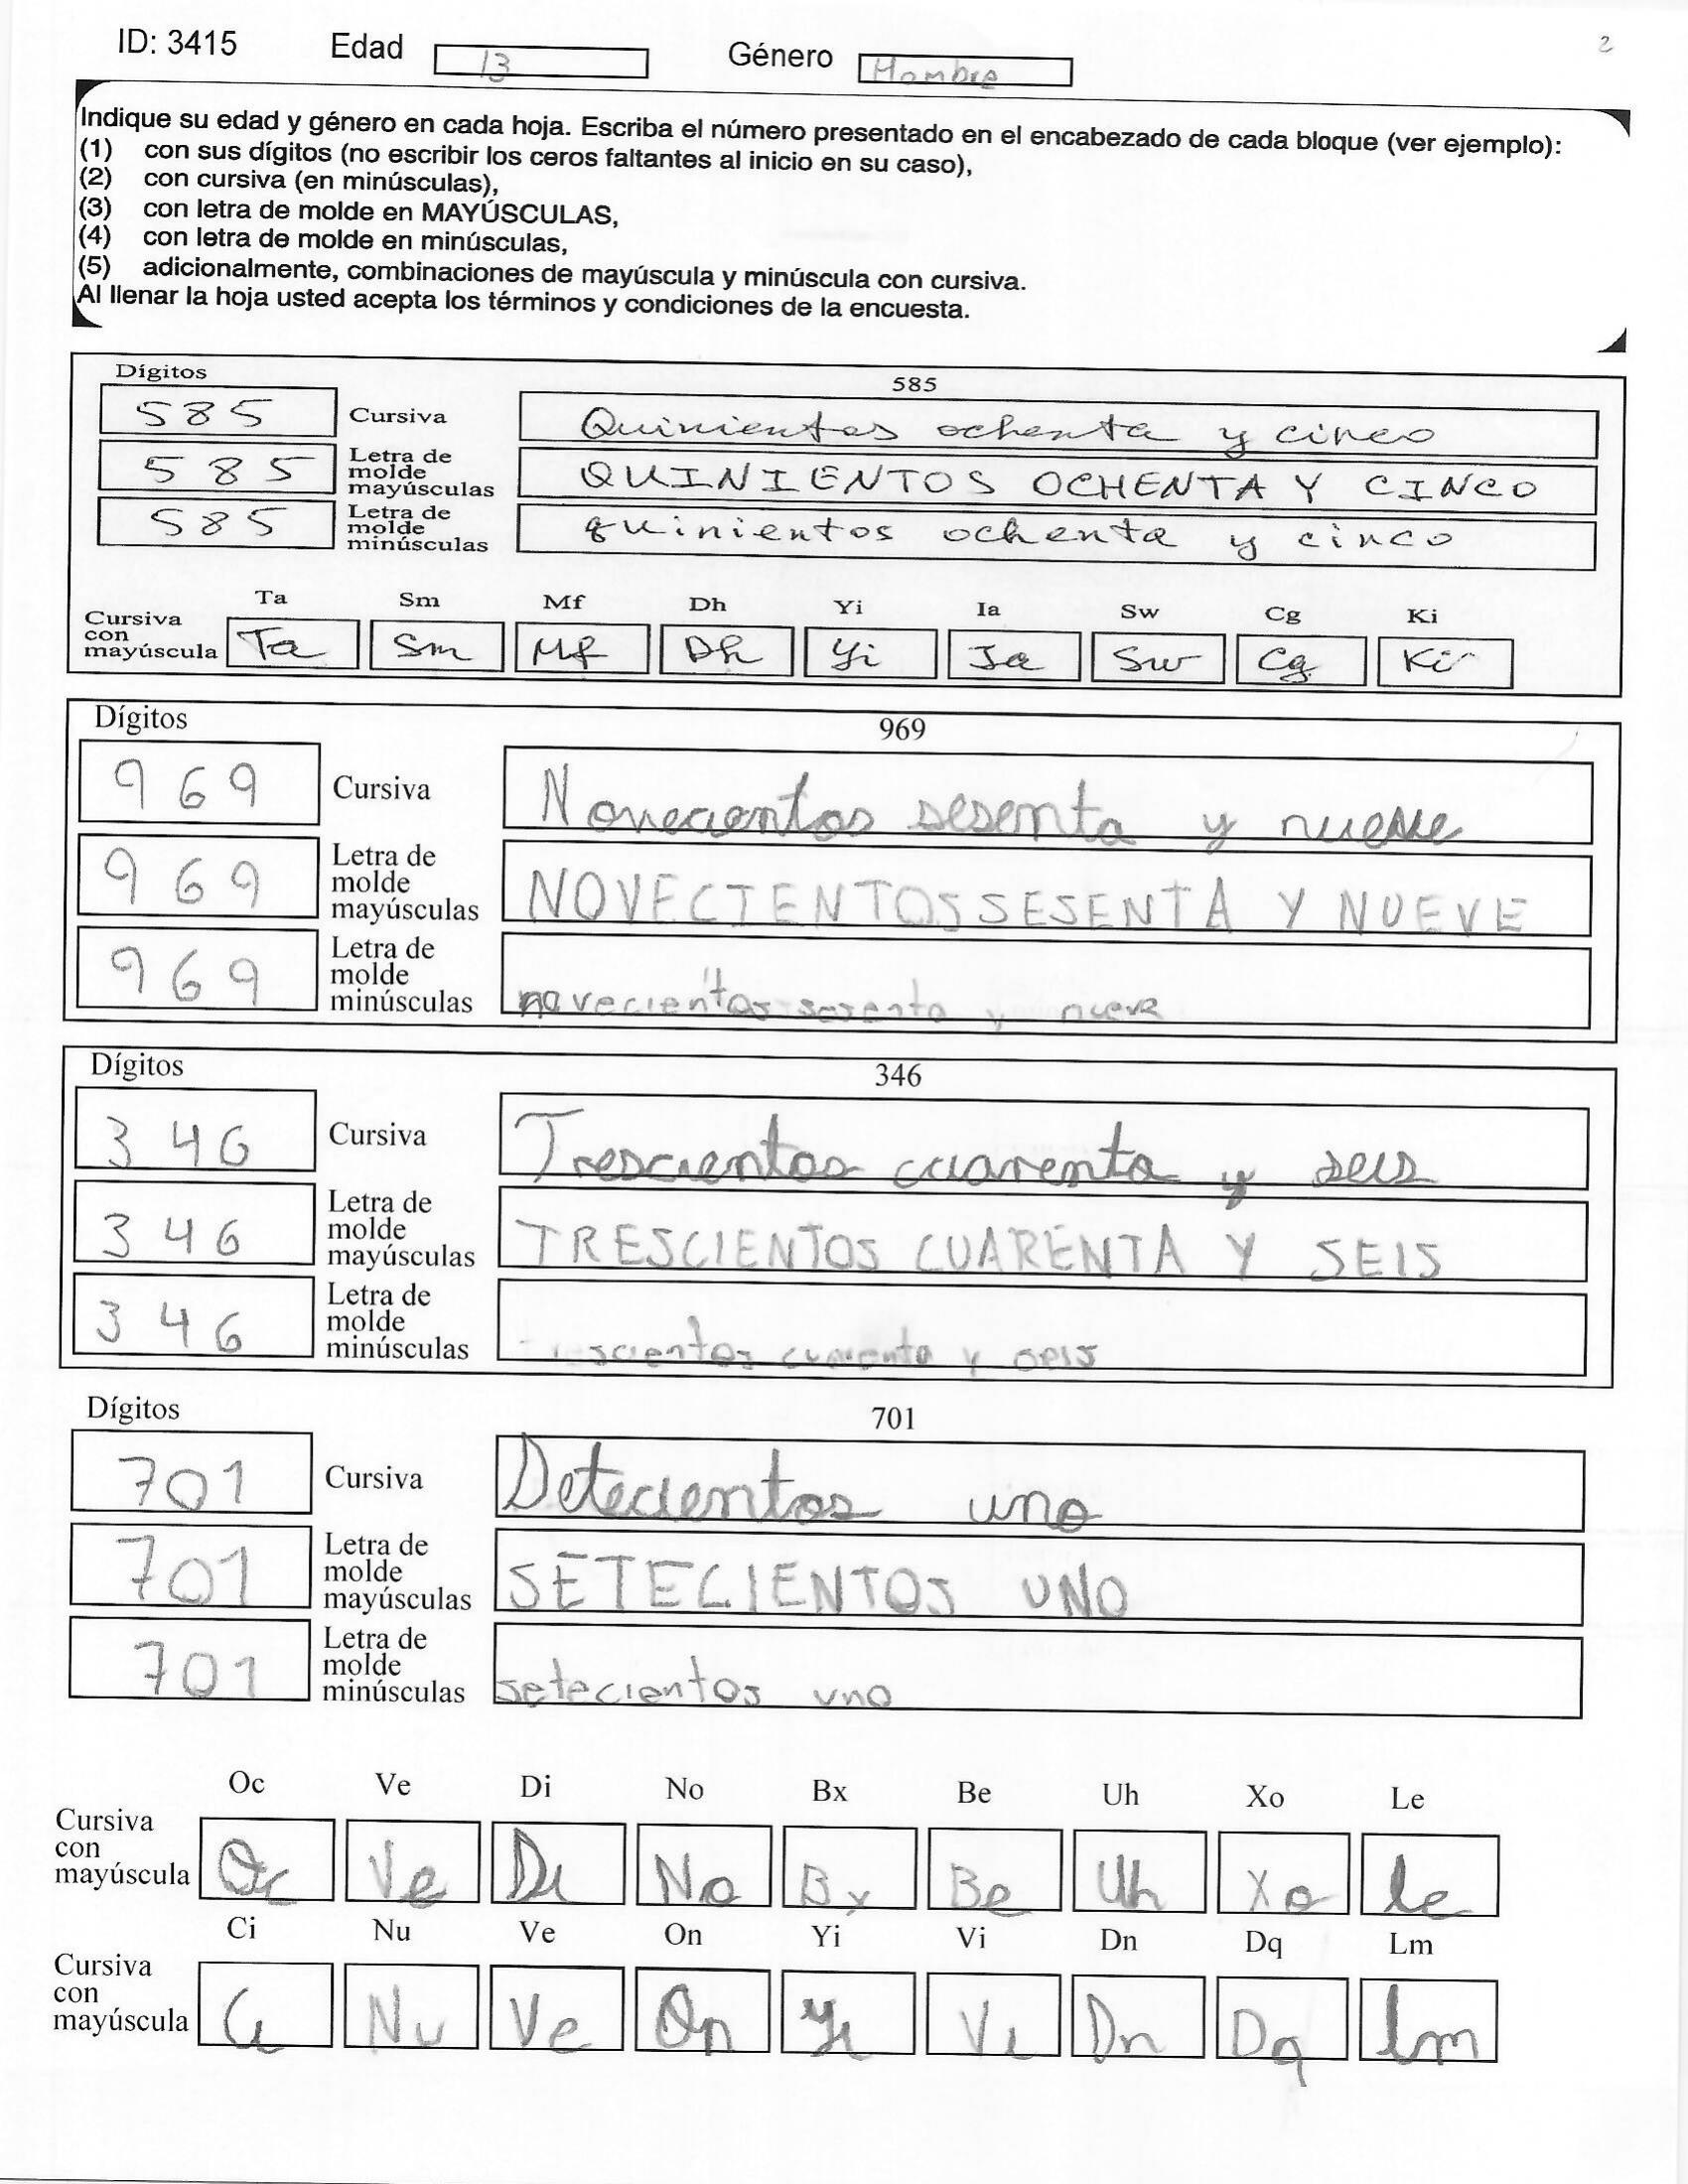 ID: 3415 Edad 13 Género Hombre 2
Indique su edad y género en cada hoja. Escriba el número presentado en el encabezado de cada bloque (ver ejemplo):
(1) con sus dígitos (no escribir los ceros faltantes al inicio en su caso),
(2) con cursiva (en minúsculas),
(3) con letra de molde en MAYÚSCULAS,
(4) con letra de molde en minúsculas,
(5) adicionalmente, combinaciones de mayúscula y minúscula con cursiva.
Al llenar la hoja usted acepta los términos y condiciones de la encuesta.
Dígitos 585
585 Cursiva Quinientos ochenta y cinco
585 Letra de molde mayúsculas QUINIENTOS OCHENTA Y CINCO
585 Letra de molde minúsculas quinientos ochenta y cinco
Ta Sm Mf Dh Yi Ia Sw Cg Ki
Cursiva con mayúscula Ta Sm Mf Dh Yi Ia Sw Cg Ki
Dígitos 969
969 Cursiva Novecientos sesenta y nueve
969 Letra de molde mayúsculas NOVECIENTOS SESENTA Y NUEVE
969 Letra de molde minúsculas novecientos sesenta y nueve
Dígitos 346
346 Cursiva Trescientos cuarenta y seis
346 Letra de molde mayúsculas TRESCIENTOS CUARENTA Y SEIS
346 Letra de molde minúsculas trescientos cuarenta y seis
Dígitos 701
701 Cursiva Setecientos uno
701 Letra de molde mayúsculas SETECIENTOS UNO
701 Letra de molde minúsculas setecientos uno
Oc Ve Di No Bx Be Uh Xo Le
Cursiva con mayúscula Oc Ve Di No Bx Be Uh Xo Le
Ci Nu Ve On Yi Vi Dn Dq Lm
Cursiva con mayúscula Ci Nu Ve On Yi Vi Dn Dq Lm